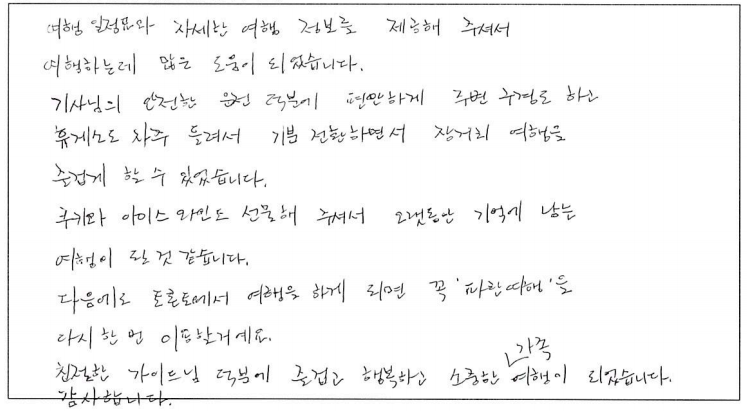 여행 일정표와 자세한 여행 정보를 제공해 주셔서
여행하는데 많은 도움이 되었습니다.
기사님의 안전한 운전 덕분에 편안하게 주변 구경도 하고
휴게소도 자주 들려서 기분 전환하면서 장거리 여행을
즐겁게 할 수 있었습니다.
쿠키와 아이스 와인도 선물해 주셔서 오랫동안 기억에 남는
여행이 될 것 같습니다.
다음에도 토론토에서 여행을 하게 되면 꼭 '파란여행'을
다시 한 번 이용할거예요.
친절한 가이드님 덕분에 즐겁고 행복하고 소중한 가족 여행이 되었습니다.
감사합니다.